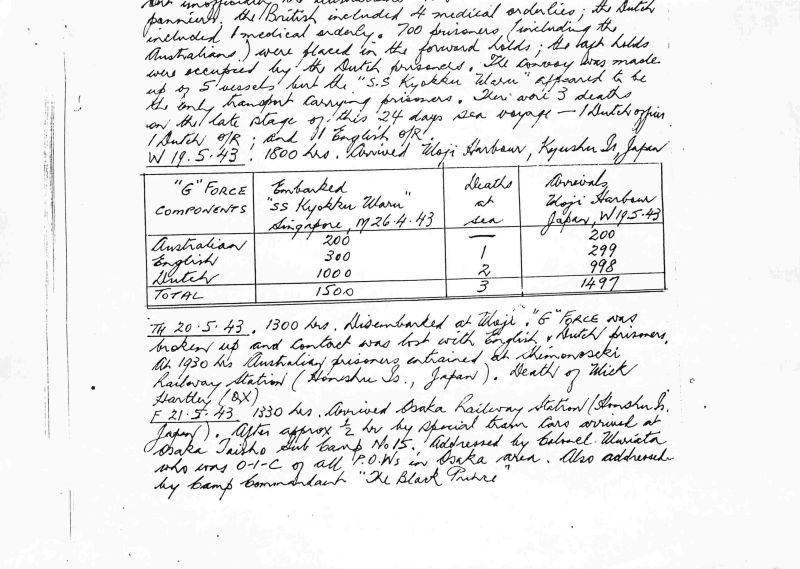 panniers, the British included 4 medical orderlies; the Dutch
included 1 medical orderly. 700 prisoners (including the
Australians) were placed in the forward holds; the aft holds
were occupied by the Dutch prisoners. The convoy was made
up of 5 vessels but the "S.S Kyokku Maru" appeared to be
the only transport carrying prisoners. There were 3 deaths
on the late stage of this 24 days sea voyage — 1 Dutch officer
1 Dutch O/R; and 1 English O/R.
W 19.5.43. 1800 hrs. Arrived Moji Harbour, Kyushu Is, Japan
"G" FORCE COMPONENTS | Embarked "SS Kyokku Maru" Singapore, M 26.4.43 | Deaths at sea | Arrivals Moji Harbour Japan, W 19.5.43
Australian 200 — 200
English 300 1 299
Dutch 1000 2 998
TOTAL 1500 3 1497
TH 20.5.43. 1300 hrs. Disembarked at Moji. "G" FORCE was
broken up and contact was lost with English & Dutch prisoners.
At 1930 hrs Australian prisoners entrained at Shimonoseki
Railway Station (Honshu Is., Japan). Death of Mick
Hartley (QX)
F 21.5.43 1330 hrs. Arrived Osaka Railway Station (Honshu Is.
Japan). After approx ½ hr by special tram cars arrived at
Osaka Taisho Sub Camp No 15. Addressed by Colonel Muriata
who was O-I-C of all P.O.Ws in Osaka area. Also addressed
by Camp Commandant "The Black Prince"